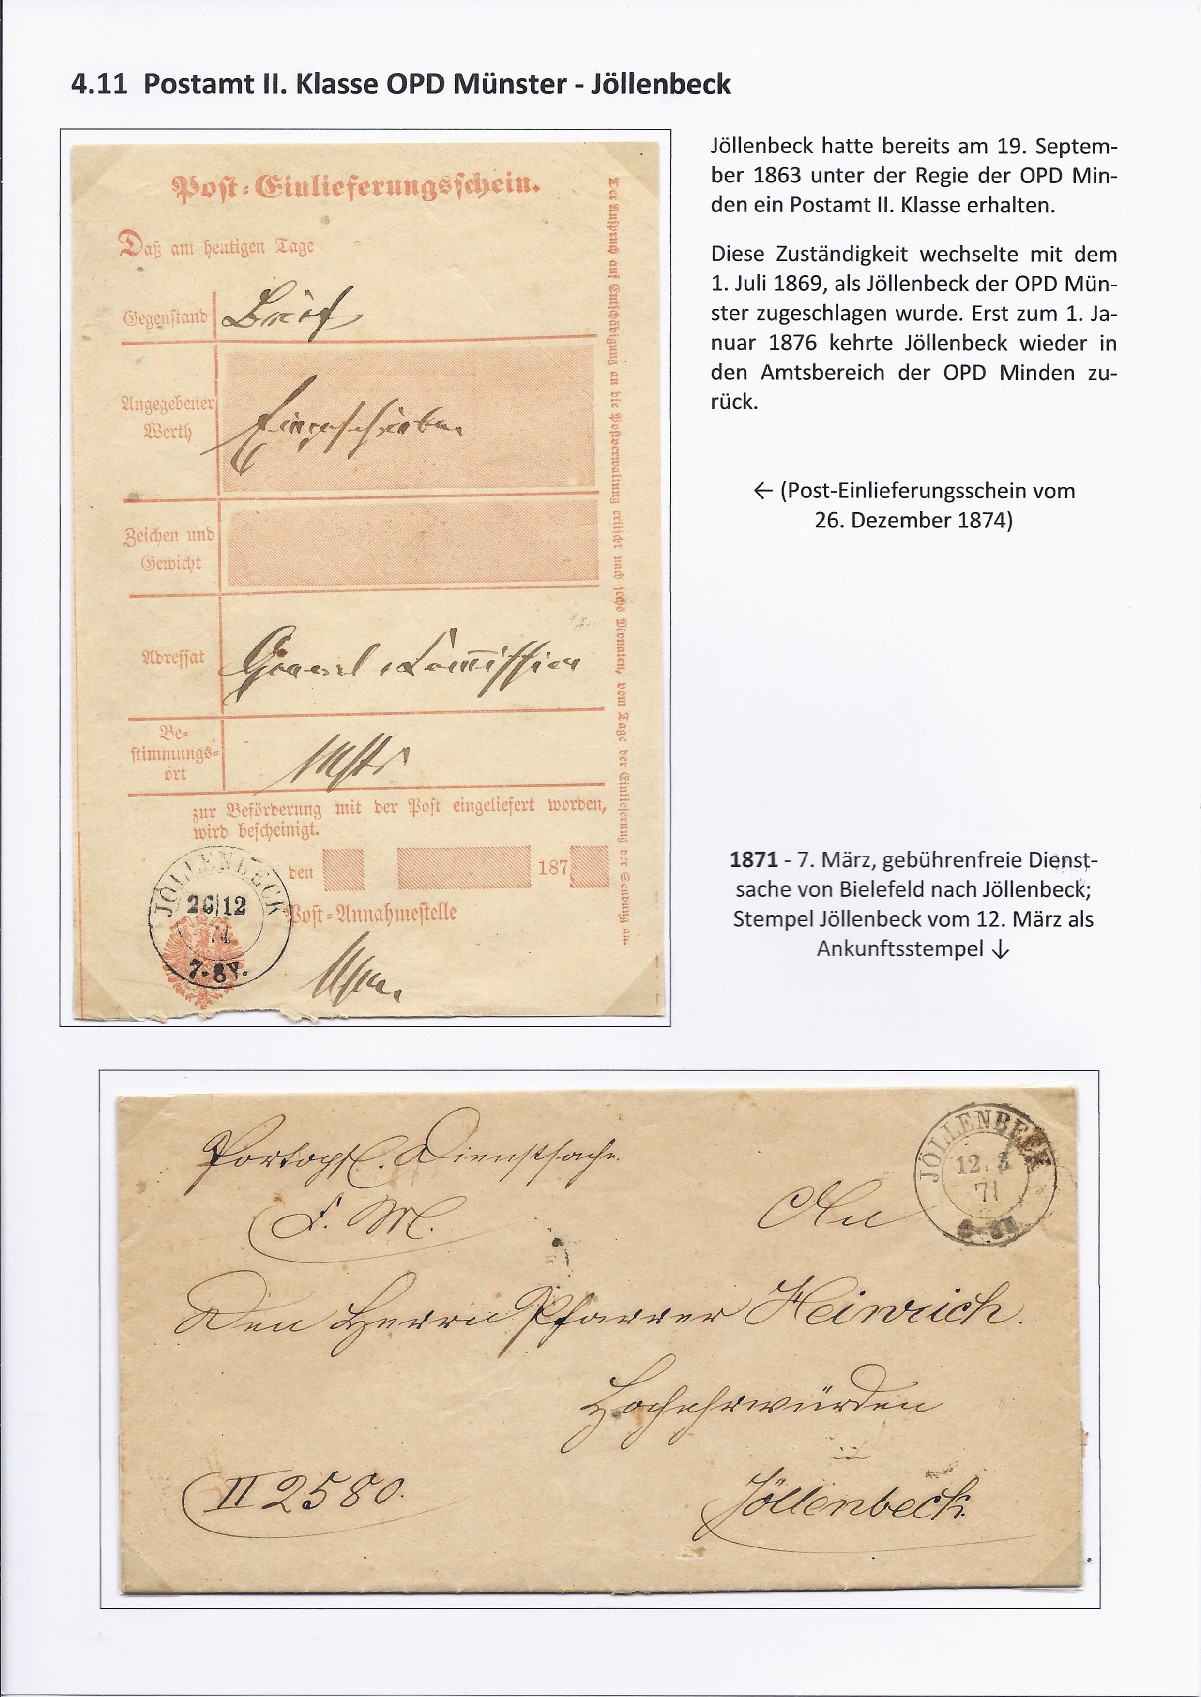 4.11 Postamt II. Klasse OPD Münster - Jöllenbeck
Post-Einlieferungsschein.
Daß am heutigen Tage
Gegenstand
Brief
Angegebener
Werth
Eingeschrieben
Zeichen und
Gewicht
Adressat
General Commission
Be-
stimmungs-
ort
Mstr
zur Beförderung mit der Post eingeliefert worden,
wird bescheinigt.
den 187
Post-Annahmestelle
JÖLLENBECK
26|12
74
7-8V.
Der Anspruch auf Entschädigung an die Postverwaltung erlischt nach sechs Monaten, vom Tage der Einlieferung der Sendung an.
Jöllenbeck hatte bereits am 19. Septem-
ber 1863 unter der Regie der OPD Min-
den ein Postamt II. Klasse erhalten.
Diese Zuständigkeit wechselte mit dem
1. Juli 1869, als Jöllenbeck der OPD Mün-
ster zugeschlagen wurde. Erst zum 1. Ja-
nuar 1876 kehrte Jöllenbeck wieder in
den Amtsbereich der OPD Minden zu-
rück.
← (Post-Einlieferungsschein vom
26. Dezember 1874)
1871 - 7. März, gebührenfreie Dienst-
sache von Bielefeld nach Jöllenbeck;
Stempel Jöllenbeck vom 12. März als
Ankunftsstempel ↓
Portopfl. Dienstsache
JÖLLENBECK
12. 3
71
An
Den Herrn Pfarrer Heinrich.
Hochehrwürden
II 2580.
Jöllenbeck.